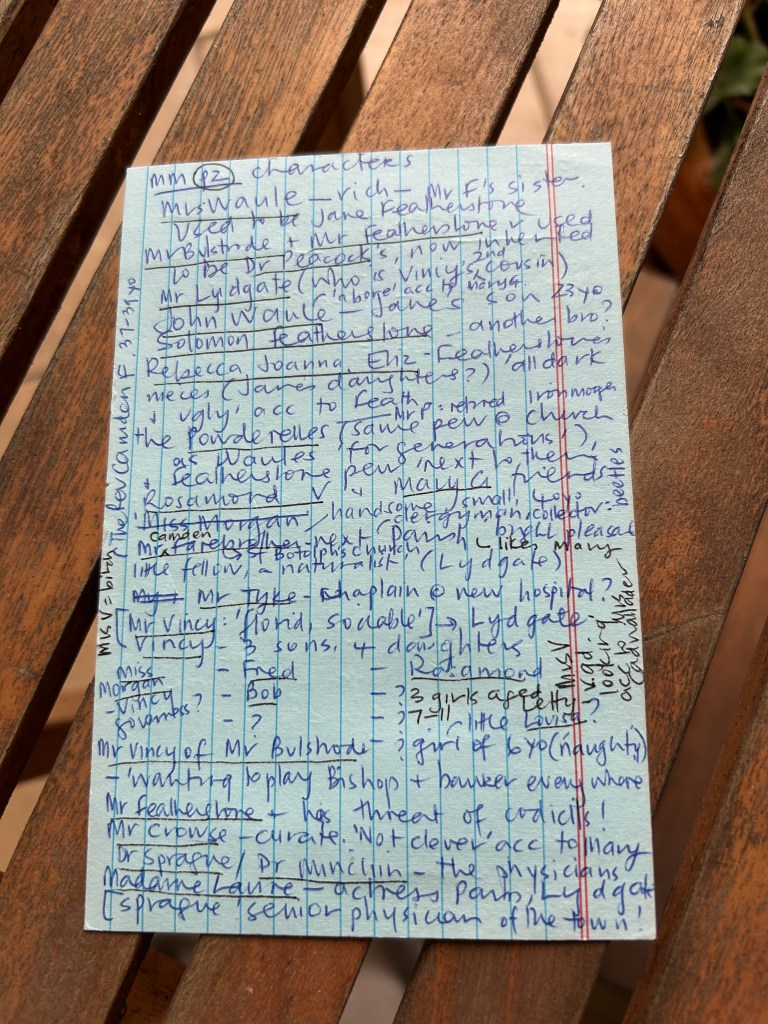 MM P2 characters
Mrs Waule – rich – Mr F's sister.
Used to be Jane Featherstone
Mr Bulstrode + Mr Featherstone used
to be Dr Peacock's, now inherited
Mr Lydgate (who is Vincy's 2nd cousin)
'above' acc to
John Waule – Jane's son 23 yo
Solomon Featherstone – another bro?
Rebecca, Joanna, Eliz – Featherstones
nieces (Jane's daughters?) 'all dark
+ ugly' acc to Feath
Mr P. retired Ironmonger
the Powderelles (same pew @ church
as Waules for generations!),
+ Featherstone pew next to them
Rosamond V + Mary G friends
Miss Morgan / handsome, small, 40yo
clergyman, collector: beetles
Mr Camden Farebrother – next Parish
St Botolph's church
likes Mary
little fellow, a naturalist' (Lydgate)
Mr Tyke – chaplain @ new hospital?
[Mr Vincy: 'florid, sociable'] → Lydgate.
Vincy – 3 sons, 4 daughters
Miss Morgan – Vincy governess?
– Fred – Rosamond
– Bob – ? 3 girls aged 7–11
Letty – ?
– ? – ? little Louisa?
– ? girl of 6yo (naughty)
Mr Vincy of Mr Bulstrode
– 'wanting to play Bishop + banker everywhere
Mr Featherstone – has threat of codicils!
Mr Crowse – curate. 'Not clever' acc to Mary
Dr Sprague / Dr Minchin – the physicians
Madame Laure – actress Paris, Lydgate
[Sprague 'senior physician of the town'!
Mrs V = birth
The Rev Camden F. 37-39 yo
Miss V v. gd looking acc to Mrs Cadwallader